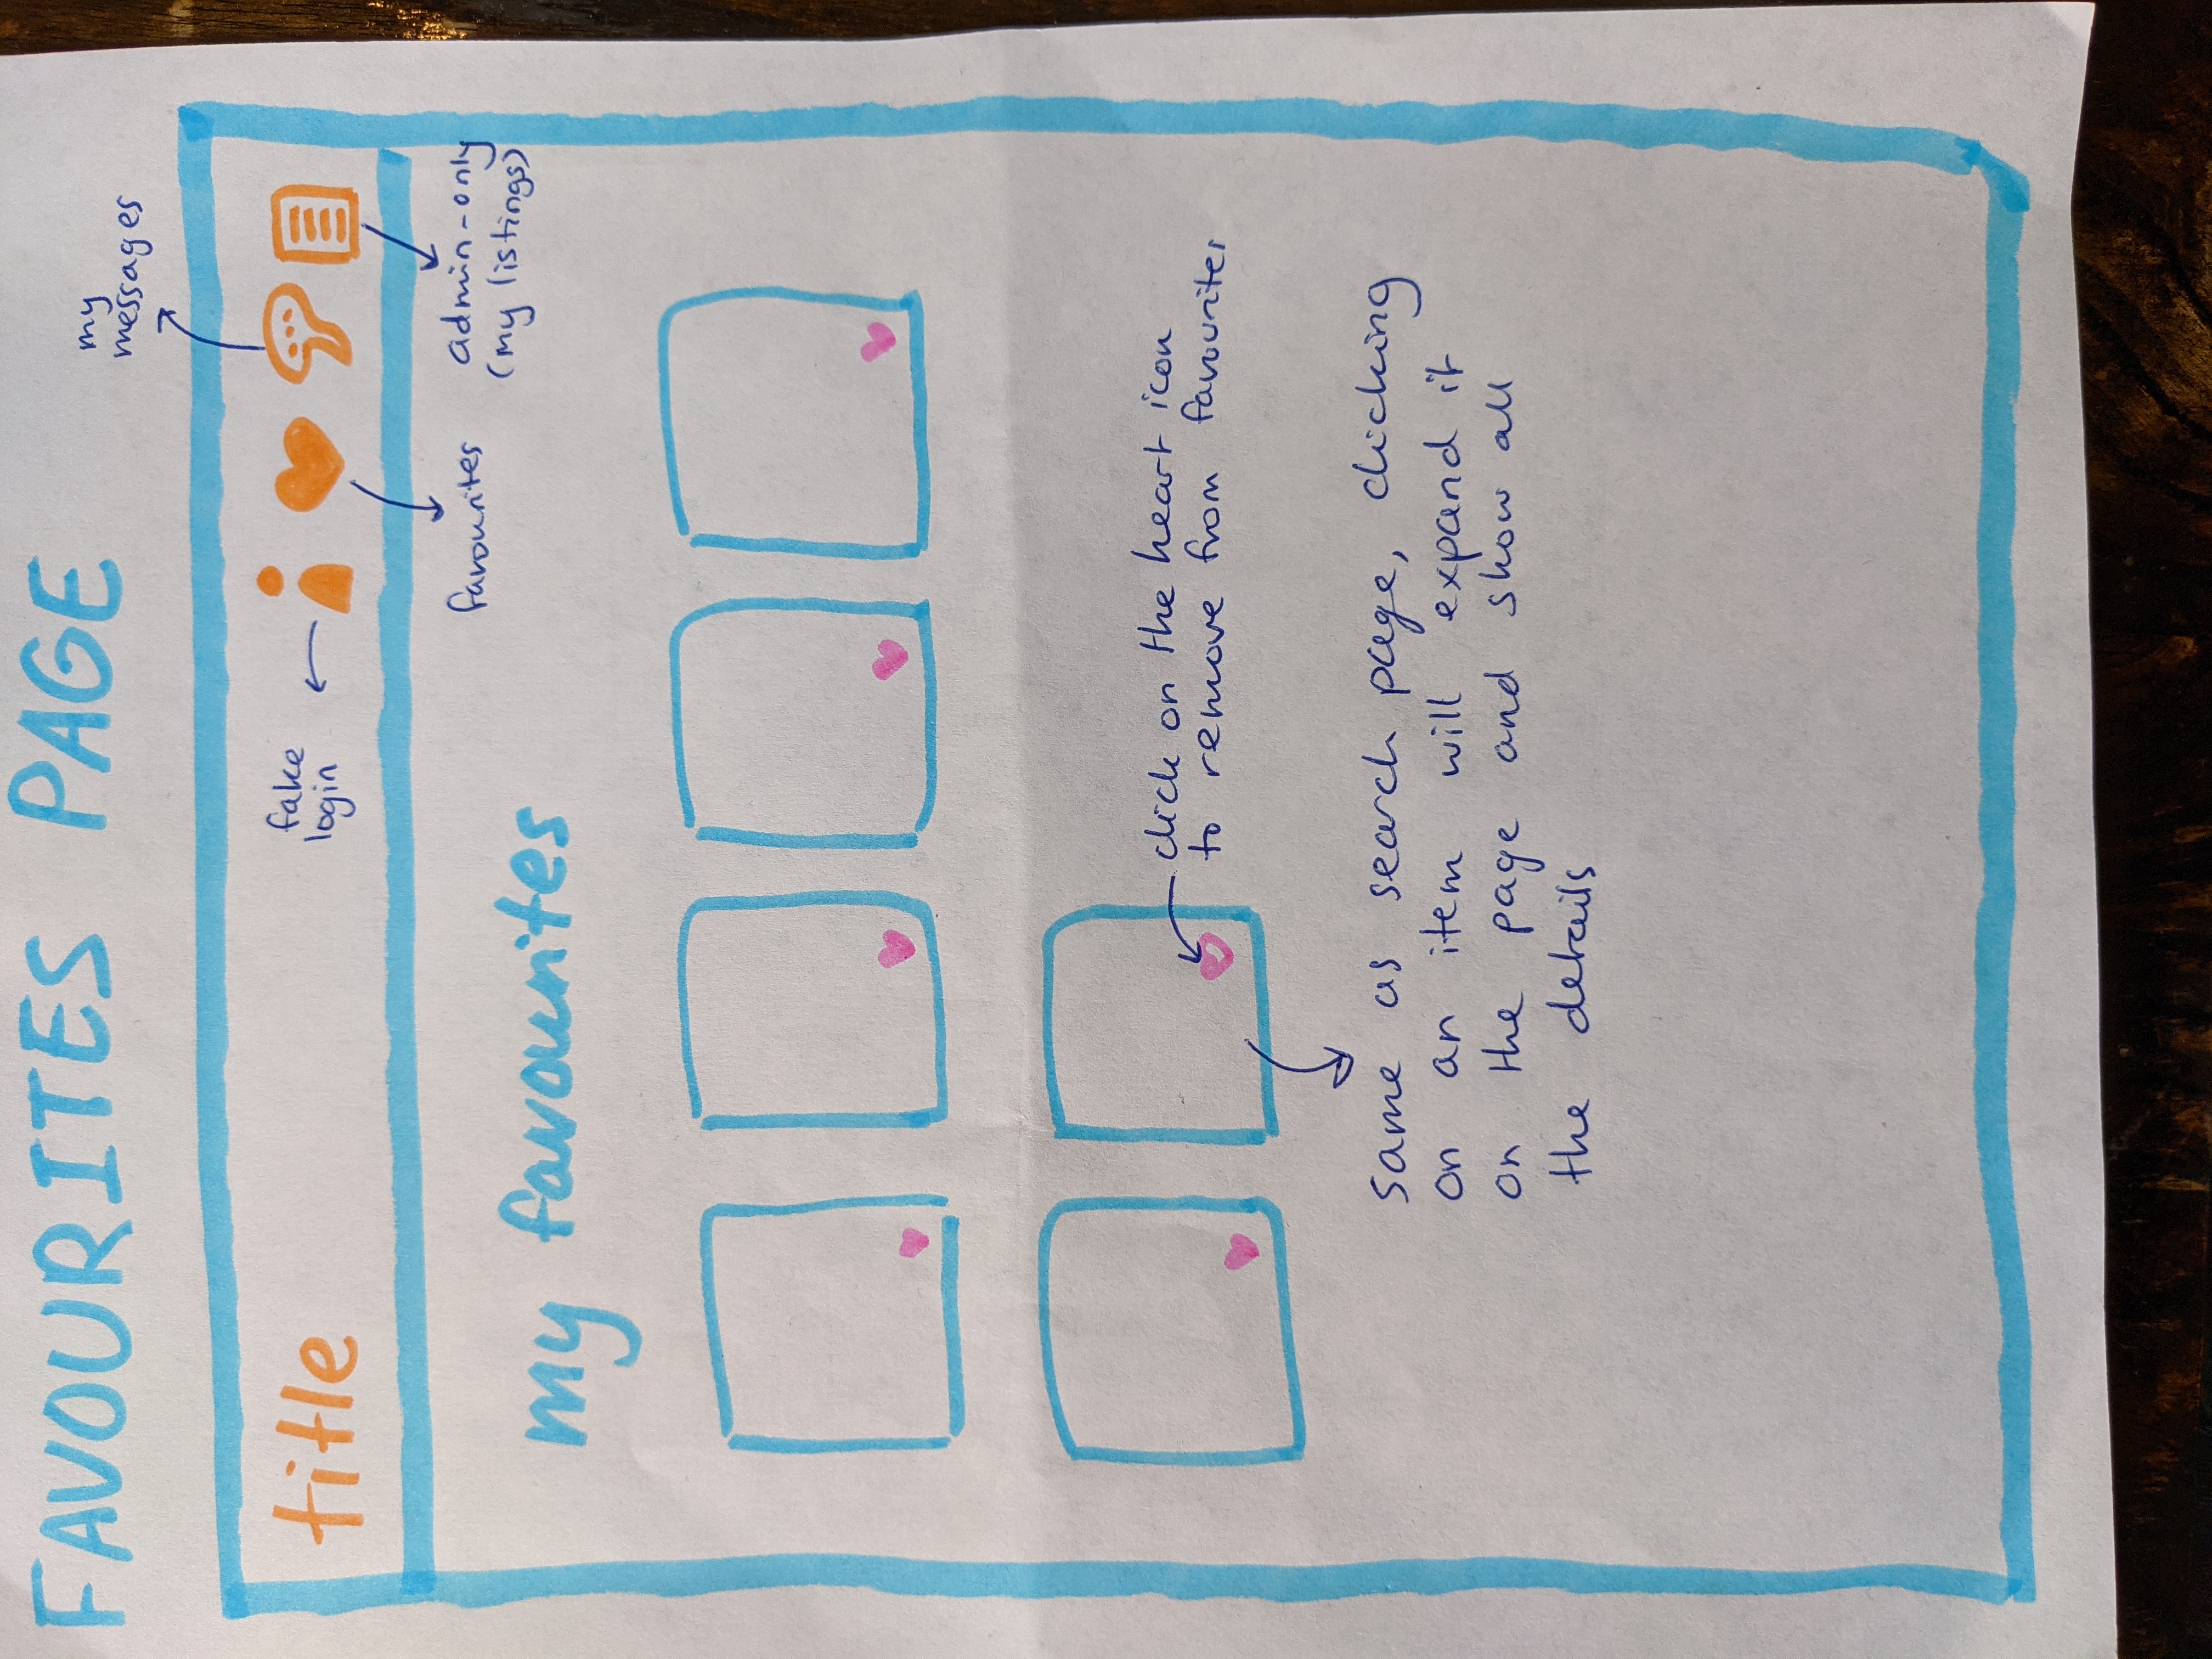 FAVOURITES PAGE
my
messages
title
fake
login
favourites
admin-only
(my listings)
my favourites
click on the heart icon
to remove from favourites
same as search page, clicking
on an item will expand it
on the page and show all
the details